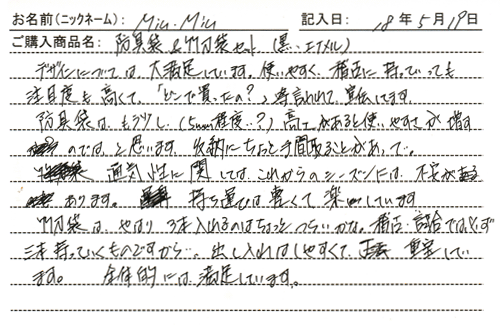 お名前(ニックネーム): Miu・Miu 記入日: 18年5月19日
ご購入商品名: 防具袋&竹刀袋セット (黒・エナメル)
デザインについては、大満足しています。使いやすく、稽古に持っていっても
注目度も高くて、「どこで買ったの?」等言われて、宣伝してます。
防具袋は、もう少し(5cm程度…?)高さがあると使いやすさが増す
のでは、と思います。収納にちょっと手間取ることがあって…。
通気性に関しては、これからのシーズンには、不安がある
あります。持ち運びは軽くて楽しています
竹刀袋は、やはり3本入れるのはちょっとつらいかな。稽古・試合では必ず
三本持っていくものですから…。出し入れはしやすくて、重宝してい
ます。 全体的には満足しています。